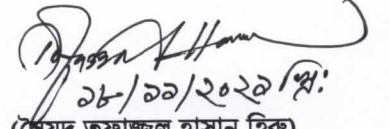 ১৮/১১/২০২১ খ্রি:
(সৈয়দ তফাজ্জল হাসান হিরু)